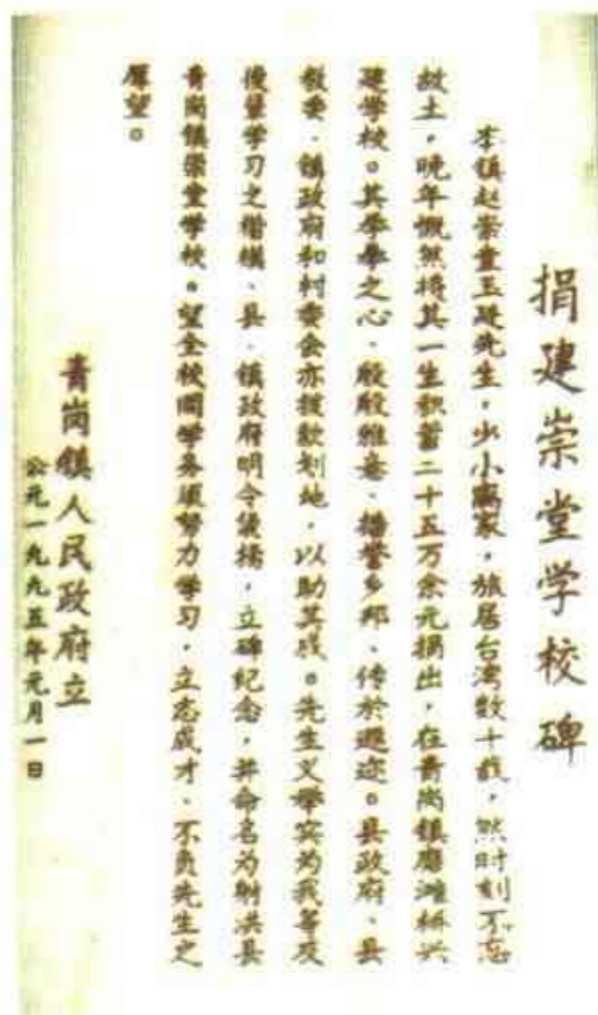 捐建崇堂学校碑
本镇赵崇堂玉琎先生，少小离家，旅居台湾数十载，然时刻不忘
故土，晚年慨然将其一生积蓄二十五万余元捐出，在青岗镇鹰滩桥兴
建学校。其拳拳之心、殷殷雅意、播誉乡邦、传於遐迩。县政府、县
教委、镇政府和村委会亦拨款划地，以助其成。先生义举实为我等及
後辈学习之楷模、县、镇政府明令褒扬，立碑纪念，并命名为射洪县
青岗镇崇堂学校。望全校同学务须努力学习，立志成才、不负先生之
厚望。
青岗镇人民政府立
公元一九九五年元月一日